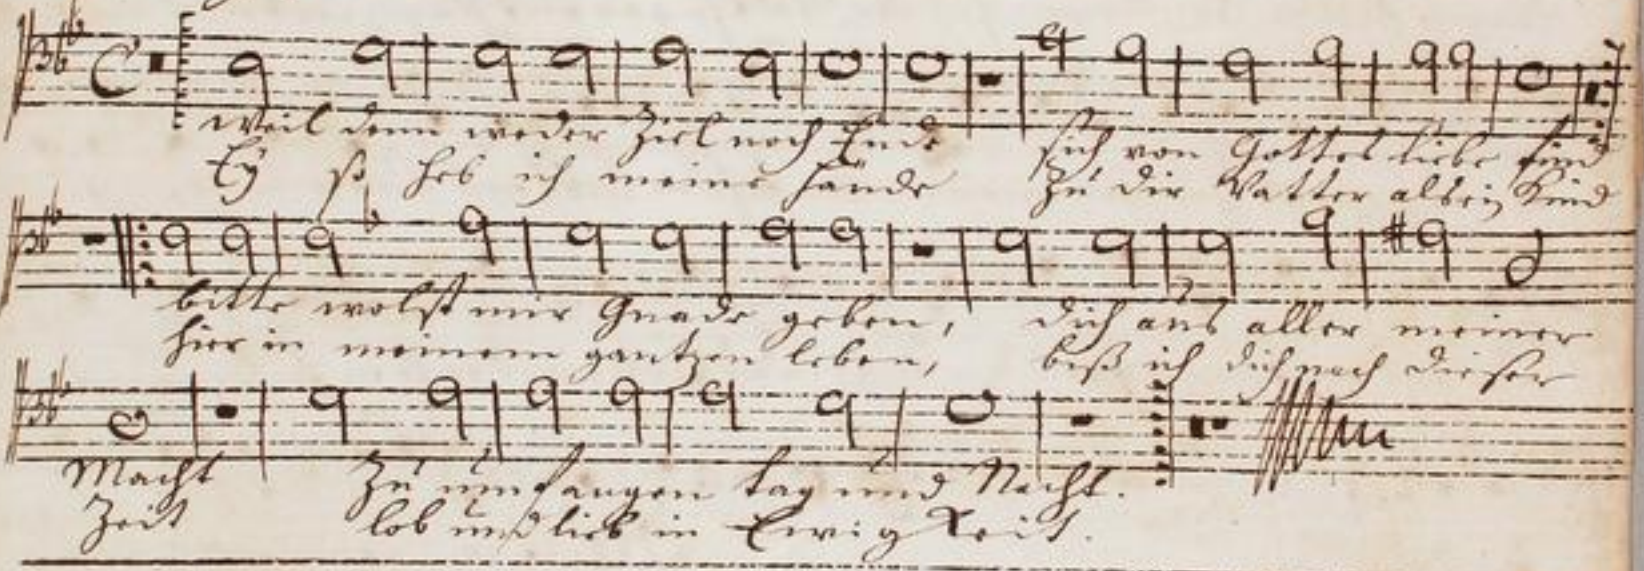 Weil denn weder Ziel noch Ende sich von Gottes liebe find
Ey so heb ich meine hände Zu dir Vatter alß ein Kind
bitte wolst mir Gnade geben, dich aus aller meiner
hier in meinem gantzen leben, biß ich dich nach dieser
Macht Zu umfangen tag und Nacht.
Zeit lob und lieb in Ewigkeit.